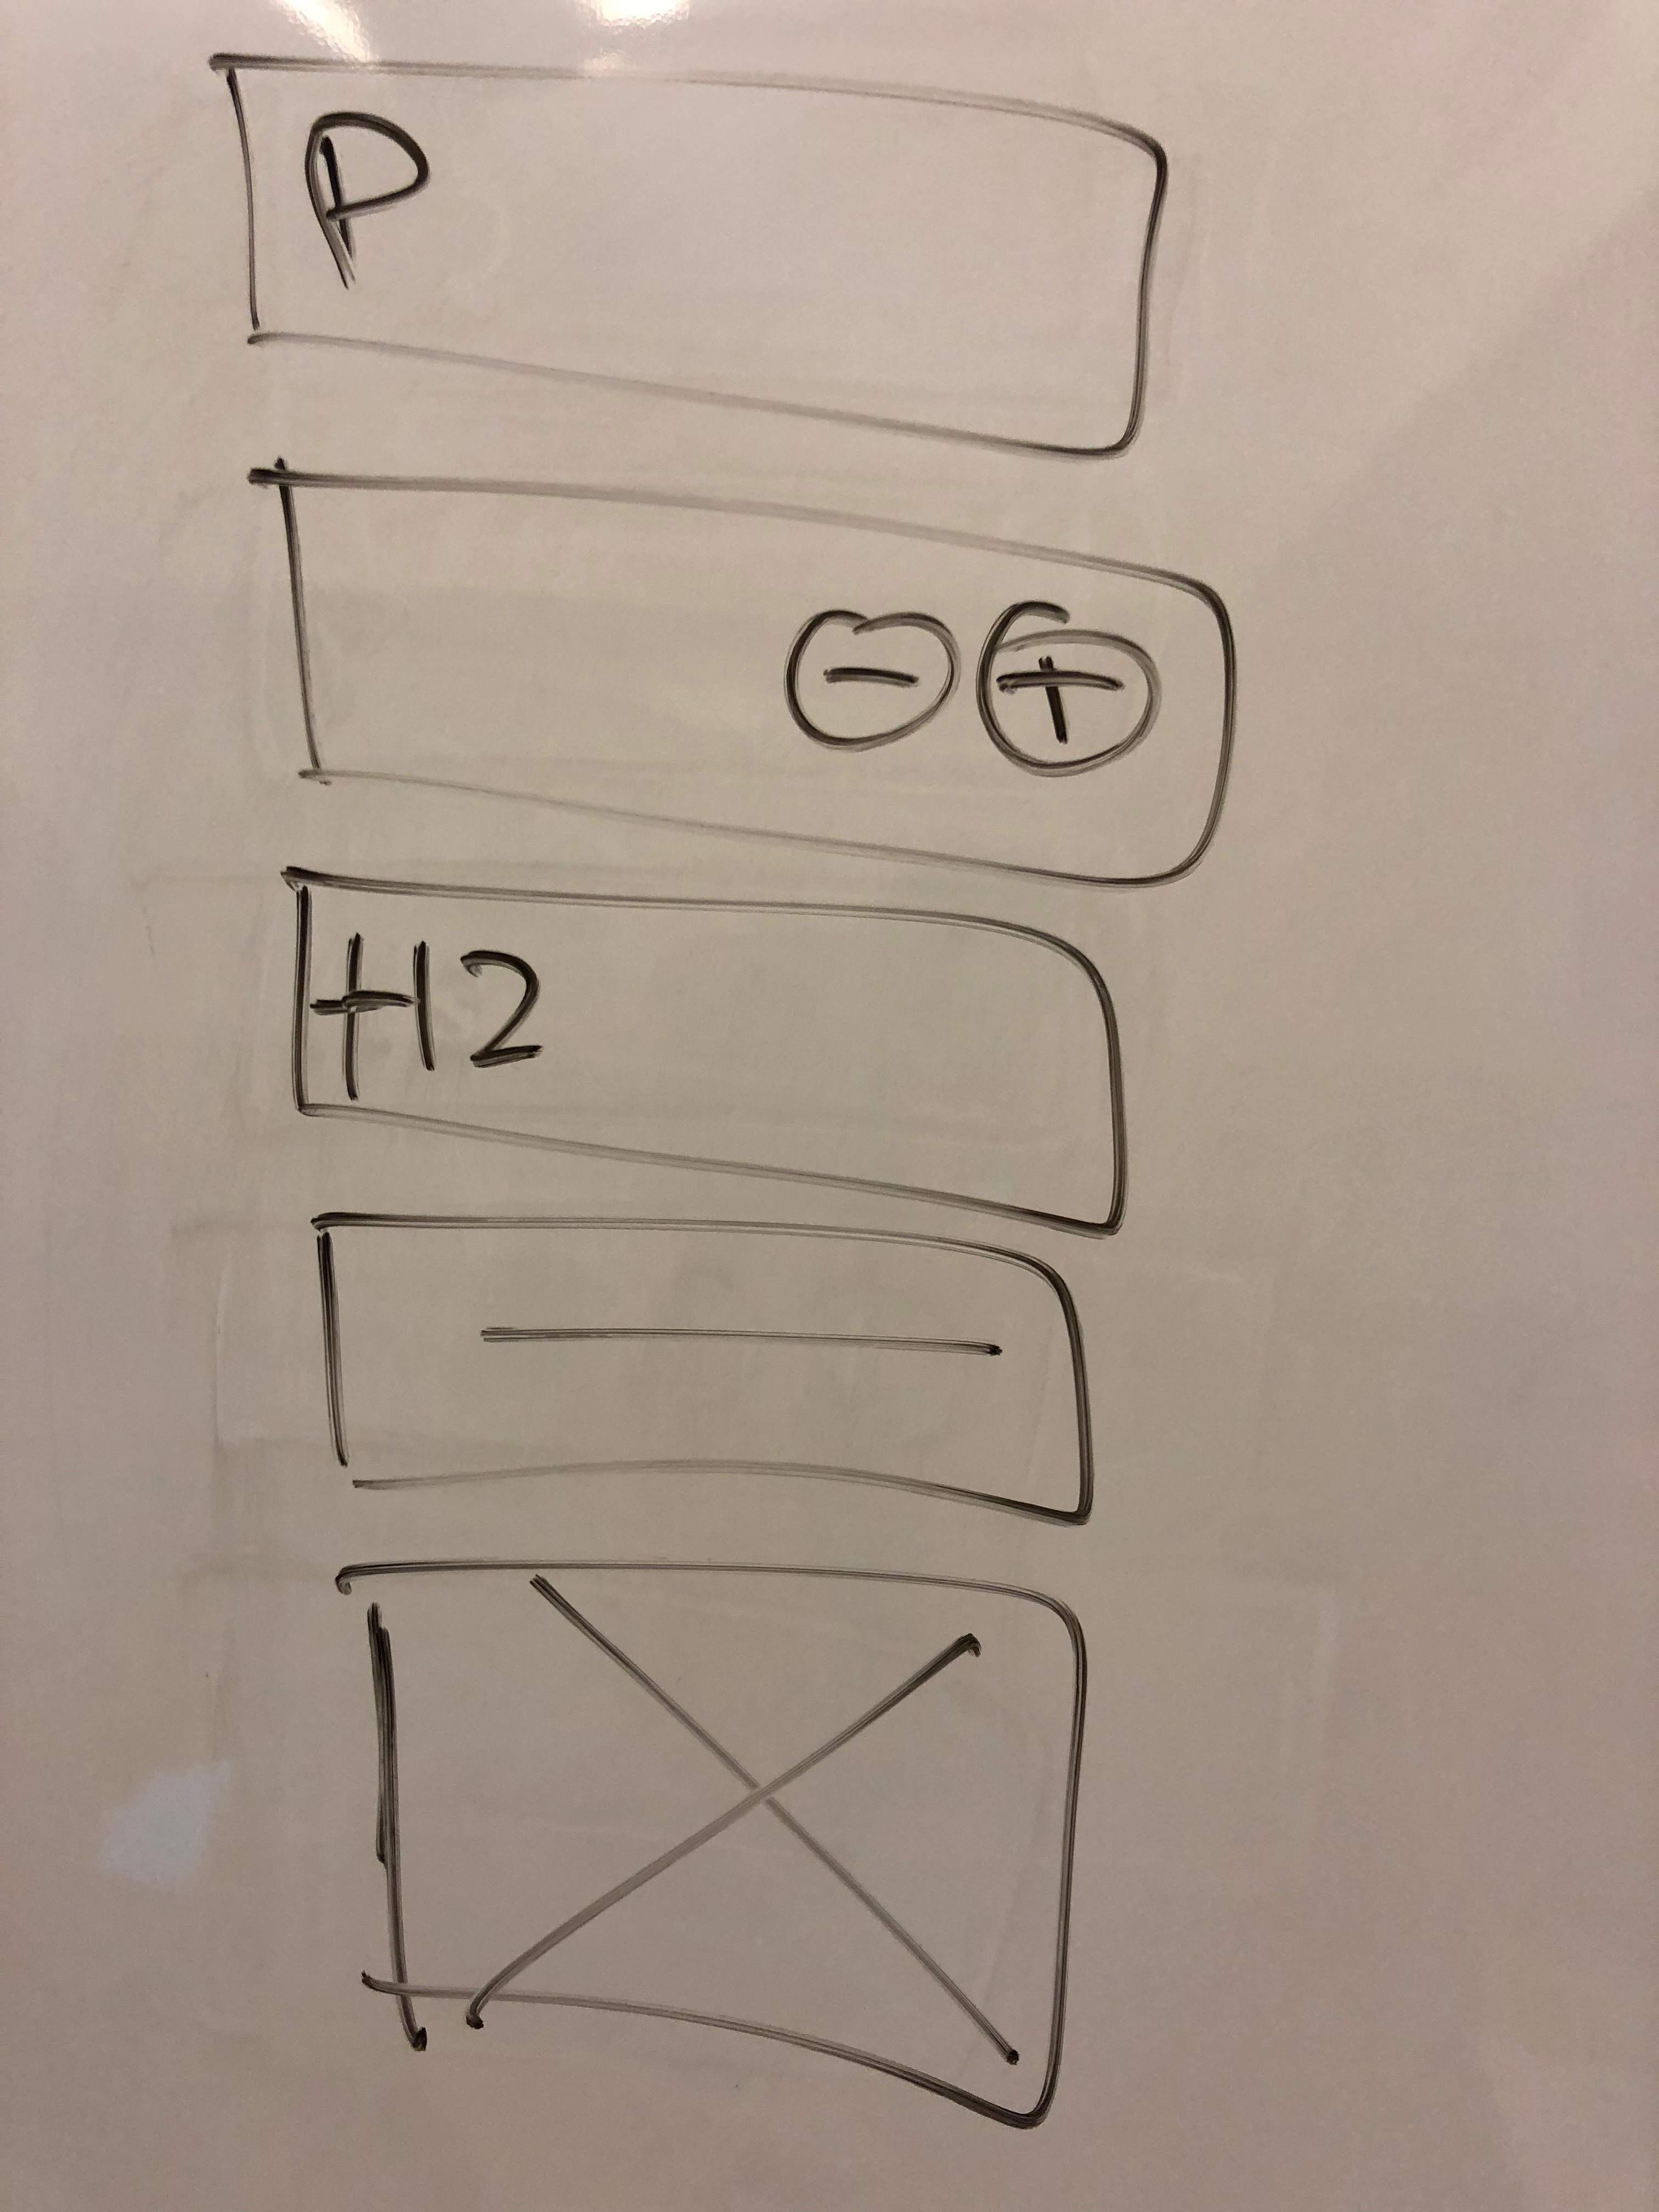 P
- +
H2